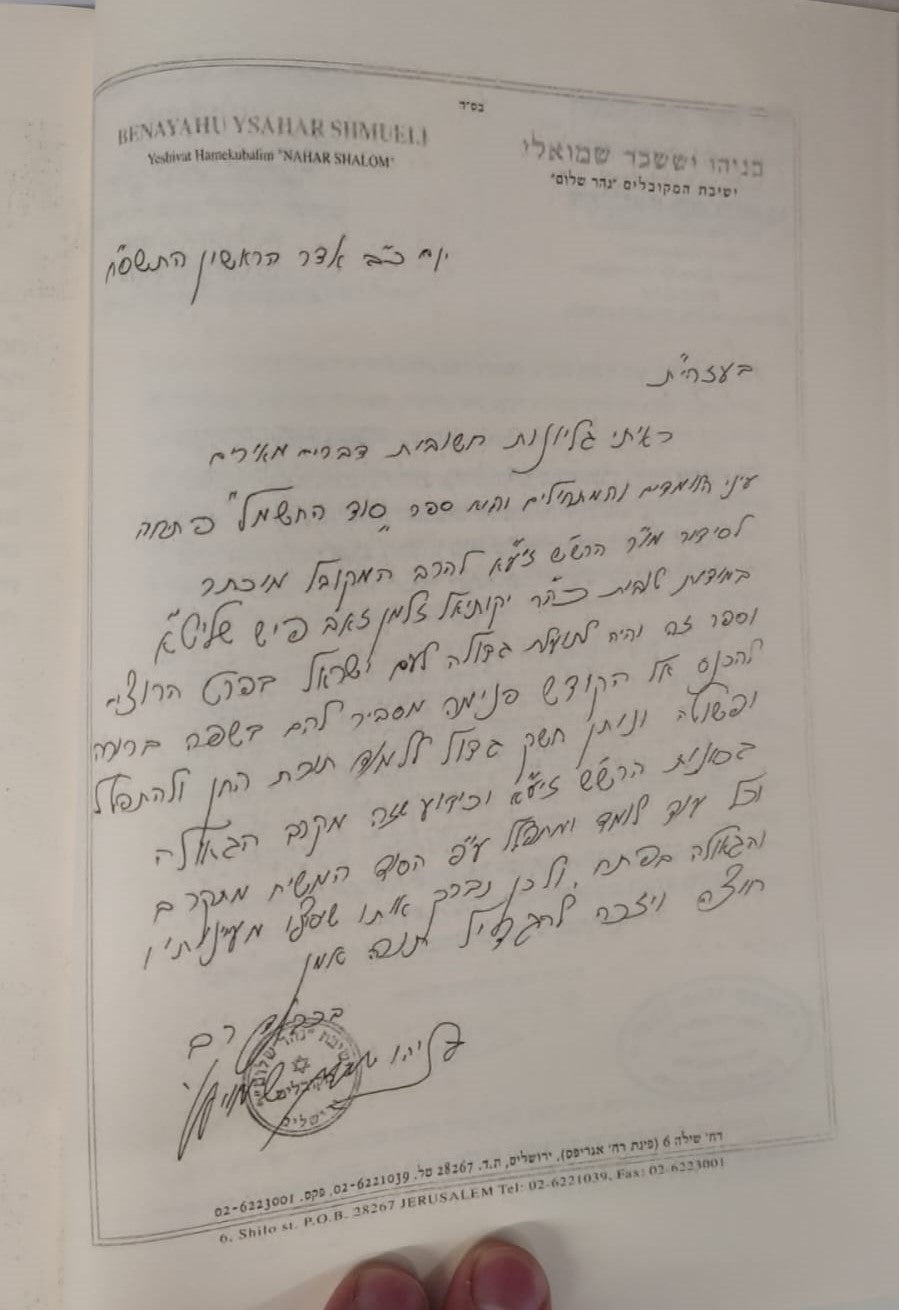 בס״ד
BENAYAHU YSAHAR SHMUELI
Yeshivat Hamekubalim "NAHAR SHALOM"
בניהו יששכר שמואלי
ישיבת המקובלים ״נהר שלום״
יום כ״ב אדר הראשון התשס״ח
בעזהי״ת
ראיתי גליונות חשובות דברים מאירים
עיני הלומדים והמתחילים והוא ספר "סוד החשמל" פתיחה
לסידור מו״ר הרש״ש זיע״א להרב המקובל מוכתר
במידות טובות כהר״ר יקותיאל זלמן זאב פיש שליט״א
וספר זה יהיה לתועלת גדולה לעם ישראל בפרט הרוצים
להכנס אל הקודש פנימה מסביר להם בשפה ברורה
ופשוטה ונותן חשק גדול ללמוד תורת החן ולהתפלל
בכוונות הרש״ש זיע״א וכידוע שזה מקרב הגאולה
וכל עוד לומד ומתפלל ע״פ הסוד המשיח מתקרב
והגאולה בפתח, ולכן נברך אותו שיפוצו מעיינותיו
חוצה ויזכה להגדיל תורה אמן
בברכה רם
בניהו שמואלי
ישיבת ״נהר שלום״
ירושלים
רח׳ שילה 6 (פינת רח׳ אגריפס), ירושלים, ת.ד. 28267 טל. 02-6221039, פקס. 02-6223001
6, Shilo st. P.O.B. 28267 JERUSALEM Tel: 02-6221039, Fax: 02-6223001